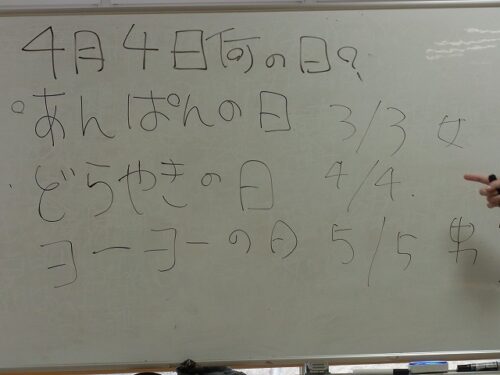 4月4日何の日?
○あんぱんの日 3/3 女
・どらやきの日 4/4.
ヨーヨーの日 5/5 男